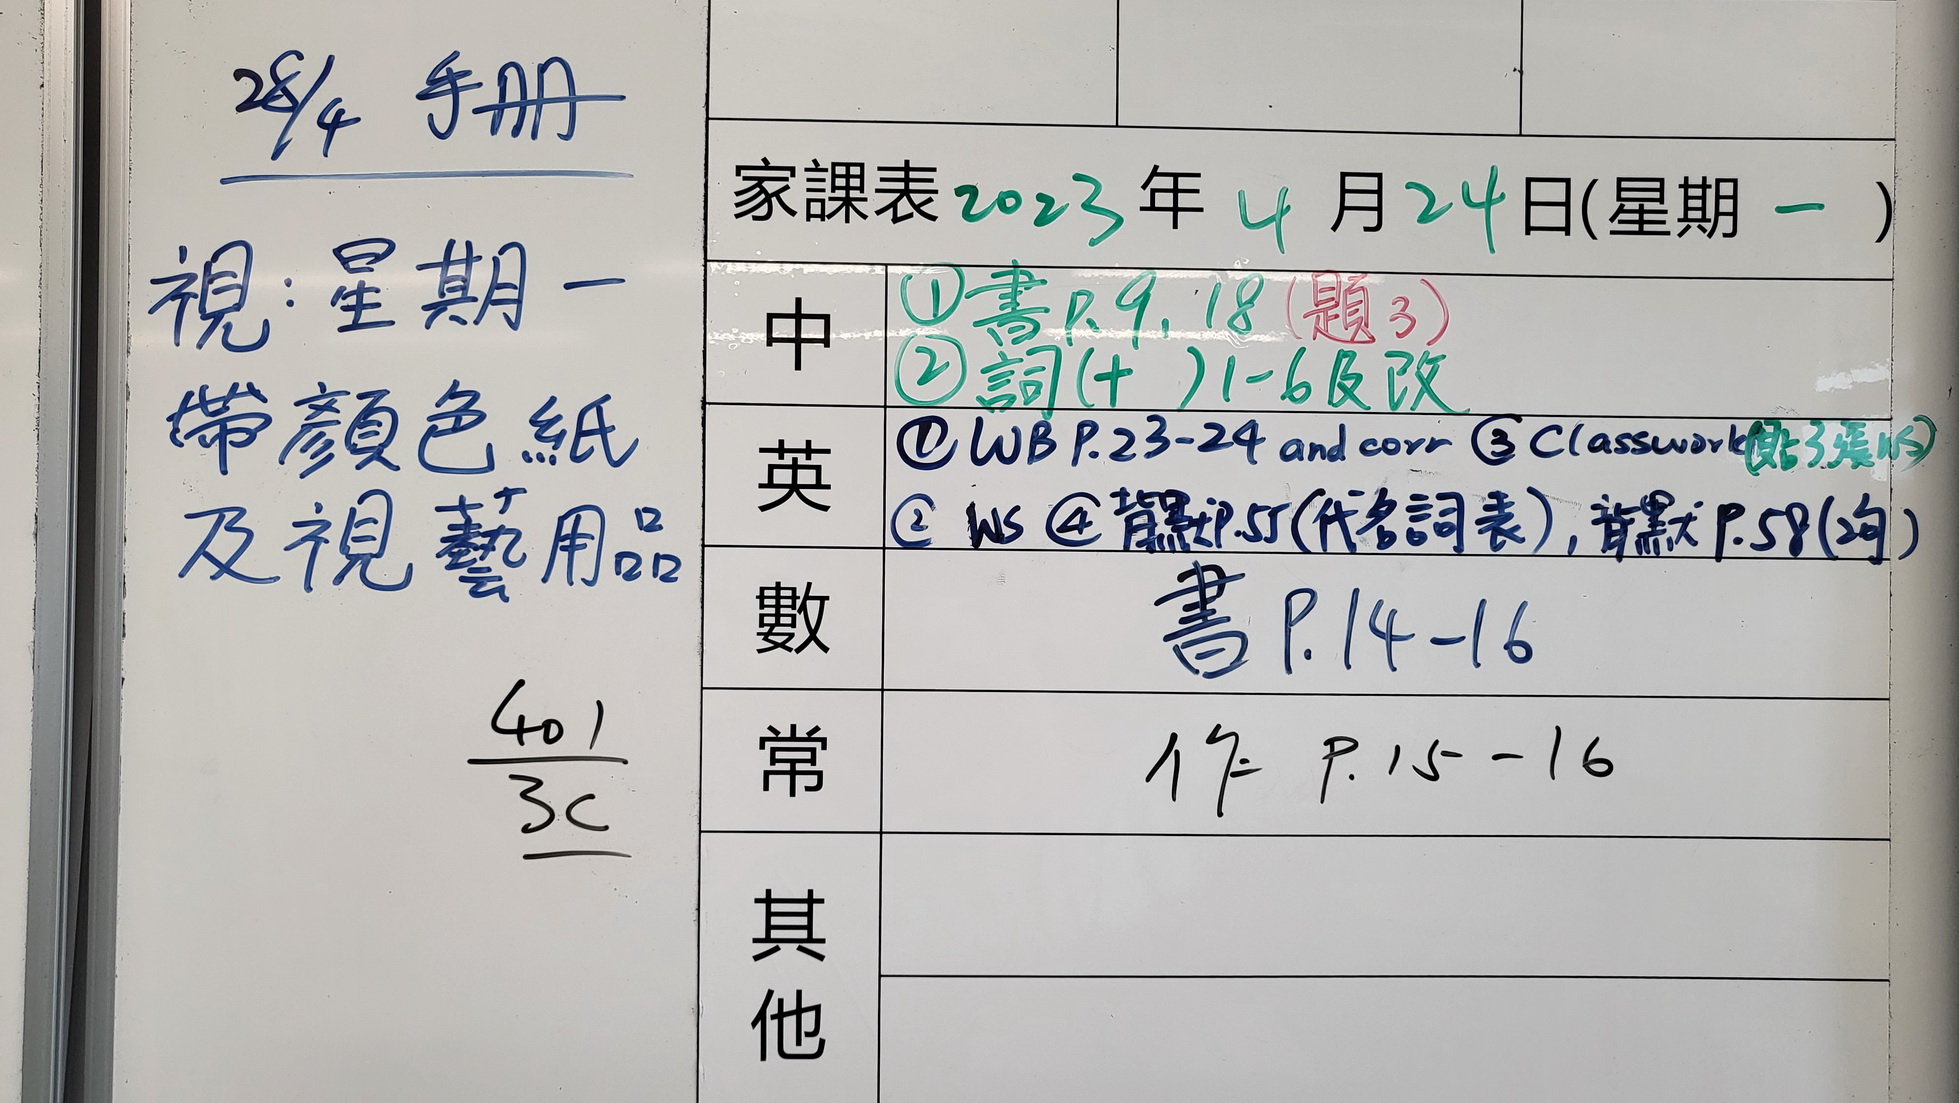 28/4 手冊
視：星期一
帶顏色紙
及視藝用品
401
3C
家課表2023年4月24日(星期一)
中
①書P.9, 18(題3)
②詞(十 )1-6及改
英
①WB P.23-24 and corr ③Classwork(貼3張WS)
②WS ④背默P.55(代名詞表), 背默P.58(2句)
數
書P.14-16
常
作 P.15-16
其他